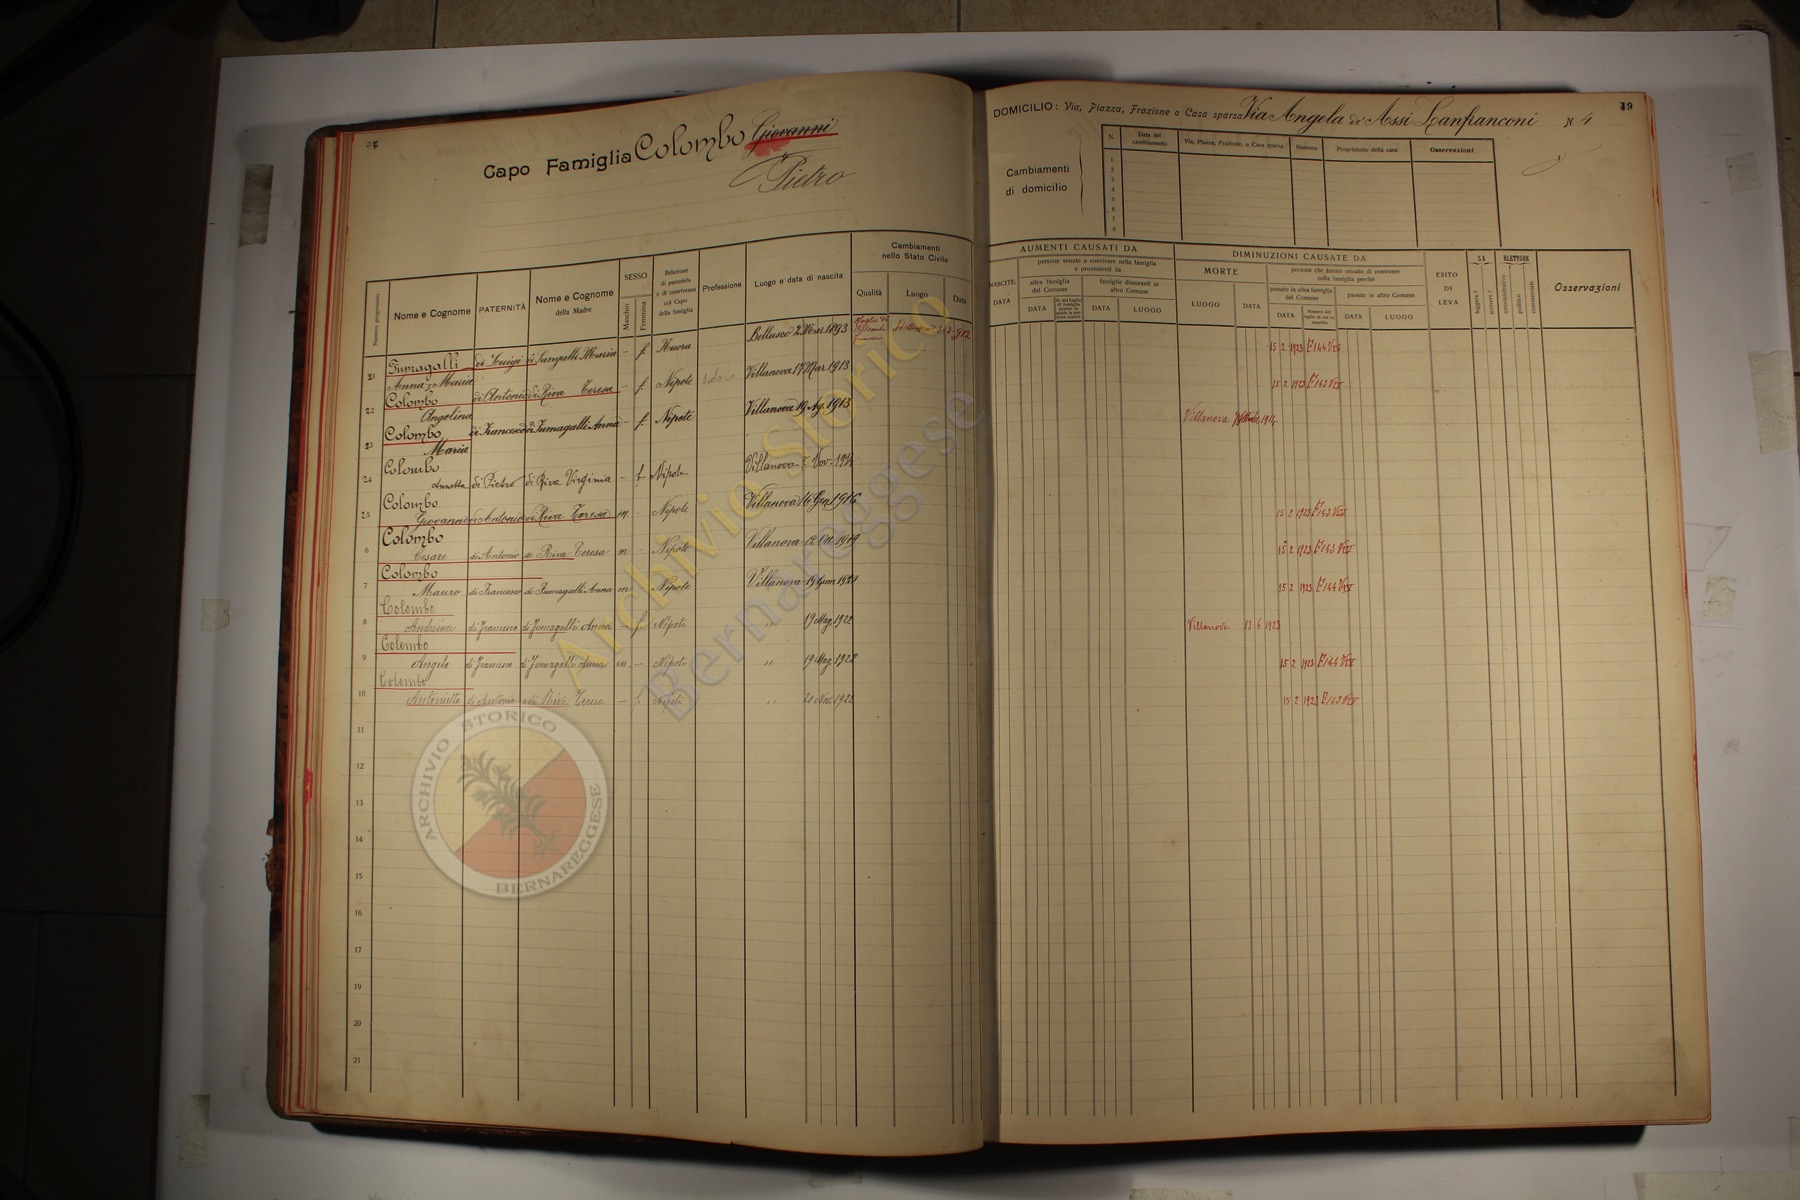 Capo Famiglia Colombo Giovanni
Pietro
DOMICILIO: Via, Piazza, Frazione o Casa sparsa Via Angela de Assi Lanfranconi N. 4
19
Cambiamenti
di domicilio
N. Data del cambiamento Via, Piazza, Frazione, o Casa sparsa Numero Proprietario della casa Osservazioni
1
2
3
4
5
6
7
8
Numero progressivo
Nome e Cognome
PATERNITÀ
Nome e Cognome
della Madre
SESSO
Maschio
Femmina
Relazione
di parentela
o di convivenza
col Capo
della famiglia
Professione
Luogo e data di nascita
Cambiamenti
nello Stato Civile
Qualità Luogo Data
NASCITE
DATA
AUMENTI CAUSATI DA
persone venute a convivere nella famiglia
e provenienti da
altra famiglia
del Comune
famiglie dimoranti in
altro Comune
DATA
DATA LUOGO
DIMINUZIONI CAUSATE DA
MORTE
LUOGO DATA
persone che hanno cessato di convivere
colla famiglia perchè
passate in altra famiglia
del Comune
passate in altro Comune
DATA
DATA LUOGO
ESITO
DI
LEVA
SA
leggere?
scrivere?
ELETTORE
amministrativo
politico
commerciale
Osservazioni
21 Fumagalli di Luigi di Sangalli Maria - f. Nuora Bellusco 2 Mar. 1893 15 2 1923
Anna Maria
22 Colombo di Antonio di Riva Teresa - f. Nipote Villanova 17 Mar. 1913 15 2 1923
Angelina
23 Colombo di Francesco di Fumagalli Anna - f. Nipote Villanova 19 Ag. 1913 Villanova 1914
Maria
24 Colombo
Annetta di Pietro di Riva Virginia - f Nipote Villanova Nov.
25 Colombo
Giovanni di Antonio di Riva Teresa m - Nipote Villanova 16 Gen. 1916 15 2 1923
6 Colombo
Cesare di Antonio di Riva Teresa m - Nipote Villanova 1919 15 2 1923
7 Colombo
Mauro di Francesco di Fumagalli Anna m - Nipote Villanova 19 15 2 1923
8 Colombo
Andreina di Francesco di Fumagalli Anna - f Nipote " 19 Mag. 1922 Villanova 13 6 1923
9 Colombo
Angelo di Francesco di Fumagalli Anna m - Nipote " 19 Mag. 1922 15 2 1923
10 Colombo
Antonietta di Antonio di Riva Teresa - f Nipote " 20 Nov. 1922 15 2 1923
11
12
13
14
15
16
17
18
19
20
21
Archivio Storico
Bernareggese
ARCHIVIO STORICO
BERNAREGGESE